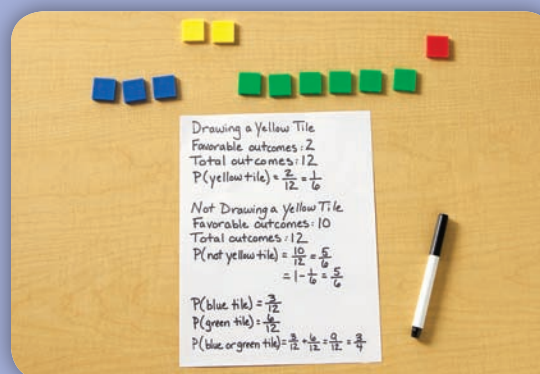 Drawing a Yellow Tile
Favorable outcomes: 2
Total outcomes: 12
P(yellow tile) = 2/12 = 1/6
Not Drawing a Yellow Tile
Favorable outcomes: 10
Total outcomes: 12
P(not yellow tile) = 10/12 = 5/6
= 1 - 1/6 = 5/6
P(blue tile) = 3/12
P(green tile) = 6/12
P(blue or green tile) = 3/12 + 6/12 = 9/12 = 3/4